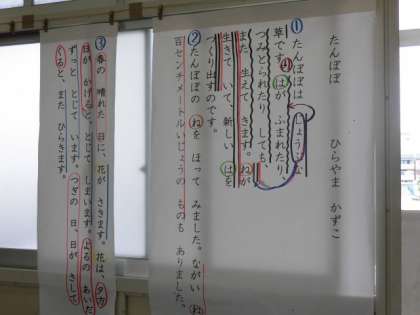 たんぽぽ
ひらやま かずこ
①たんぽぽは じょうぶな
草です。はが ふまれたり、
つみとられたり しても、
また 生えて きます。ねが
生きて いて、新しい はを
つくり出すのです。
②たんぽぽの ねを ほって みました。ながい ね
百センチメートルいじょうの ものも ありました。
③春の 晴れた 日に、花が さきます。花は、夕方
日が かげると、とじて しまいます。よるの あいだ
ずっと とじて います。つぎの 日、日が さして
くると、また ひらきます。